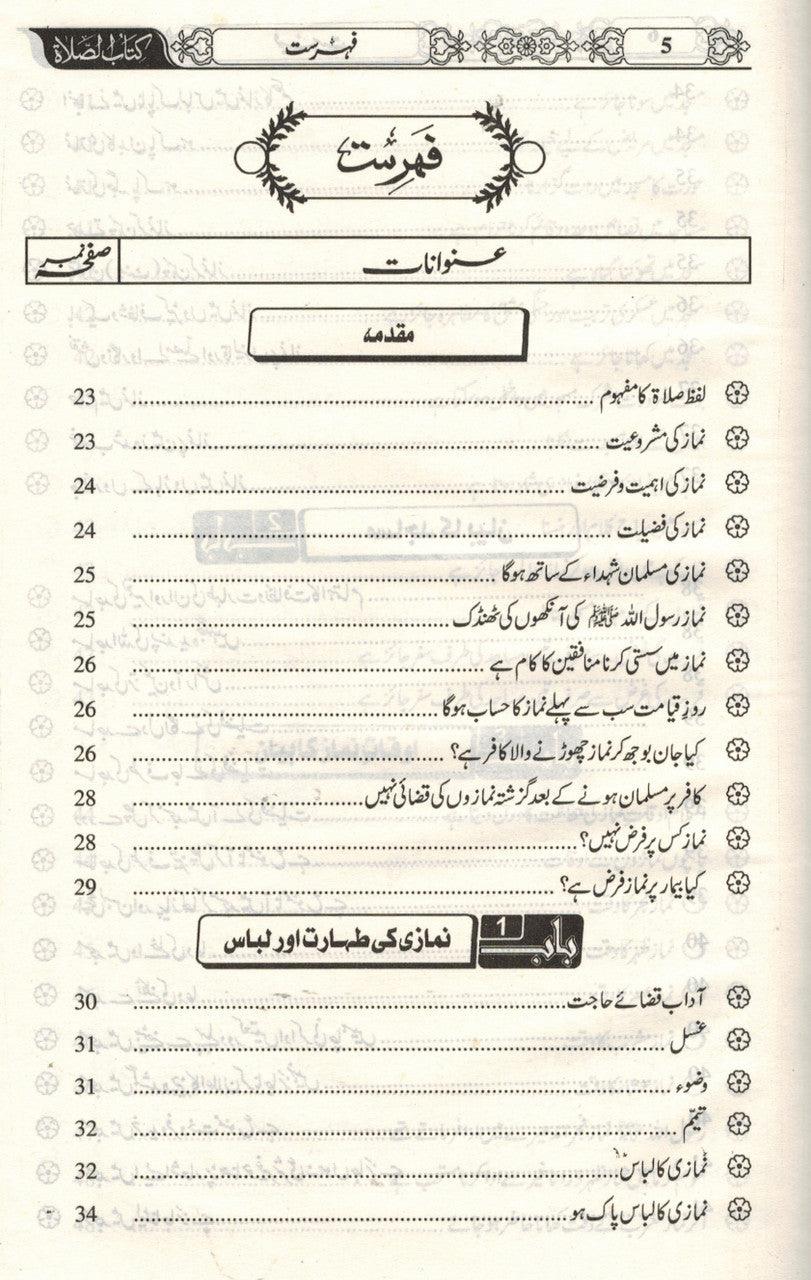 5 فہرست کتاب الصلاۃ
فہرست
عنوانات صفحہ نمبر
مقدمہ
لفظ صلاۃ کا مفہوم ........ 23
نماز کی مشروعیت ........ 23
نماز کی اہمیت و فرضیت ........ 24
نماز کی فضیلت ........ 24
نمازی مسلمان شہداء کے ساتھ ہوگا ........ 25
نماز رسول اللہ ﷺ کی آنکھوں کی ٹھنڈک ........ 25
نماز میں سستی کرنا منافقین کا کام ہے ........ 26
روزِ قیامت سب سے پہلے نماز کا حساب ہوگا ........ 26
کیا جان بوجھ کر نماز چھوڑنے والا کافر ہے؟ ........ 26
کافر پر مسلمان ہونے کے بعد گزشتہ نمازوں کی قضائی نہیں ........ 28
نماز کس پر فرض نہیں؟ ........ 28
کیا بیمار پر نماز فرض ہے؟ ........ 29
باب 1 نمازی کی طہارت اور لباس
آداب قضائے حاجت ........ 30
غسل ........ 31
وضوء ........ 31
تیمّم ........ 32
نمازی کا لباس ........ 32
نمازی کا لباس پاک ہو ........ 34